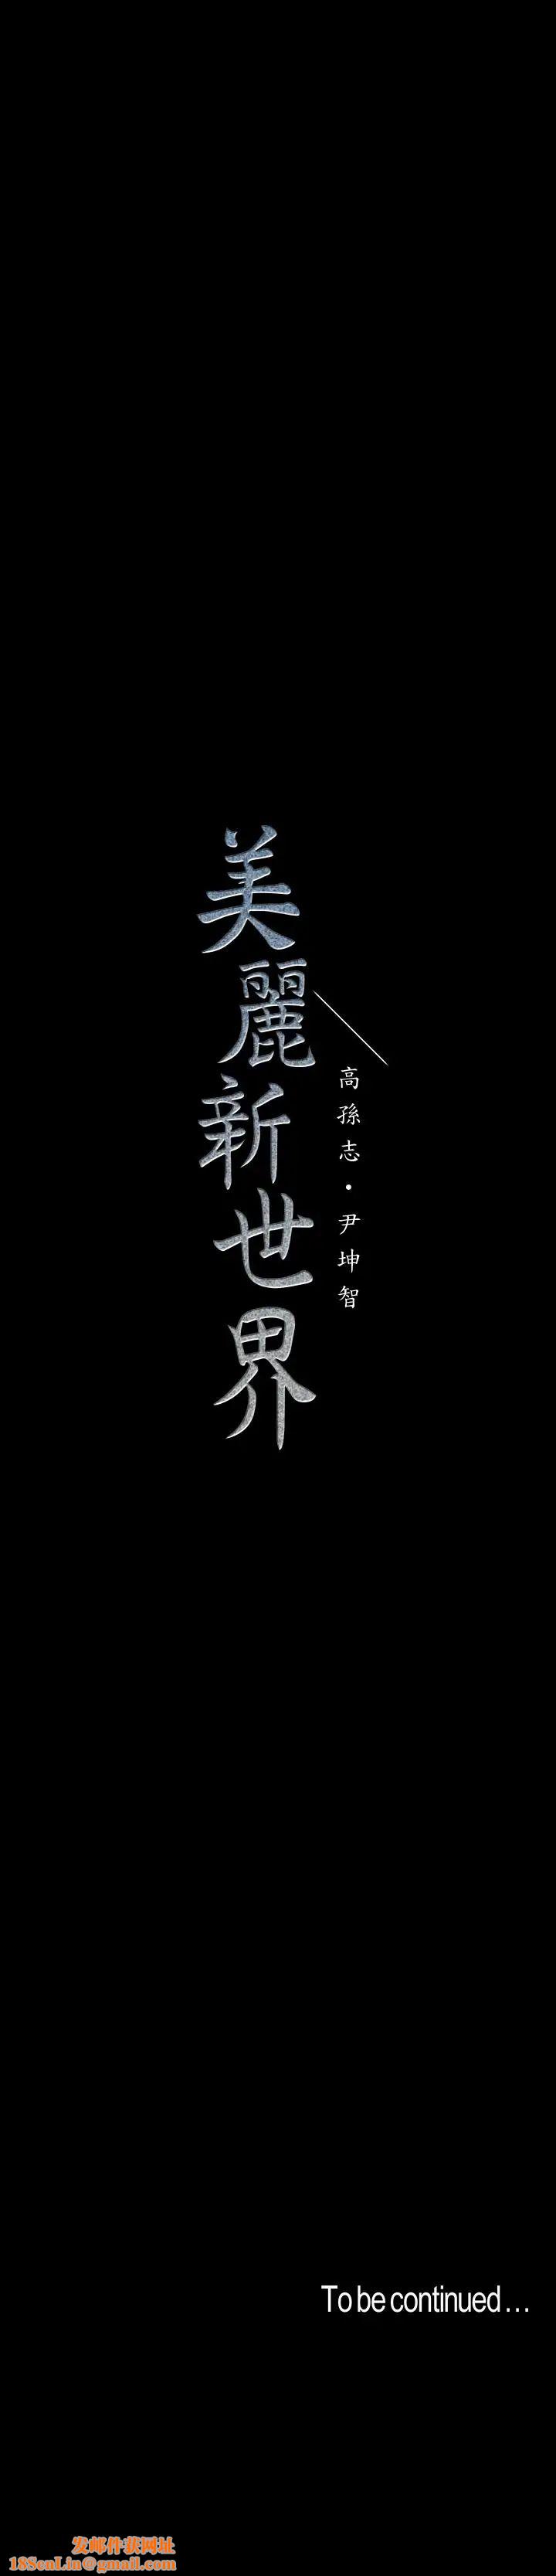 美麗新世界
高孫志・尹坤智
To be continued ...
发邮件获网址
18SonLin@gmail.com